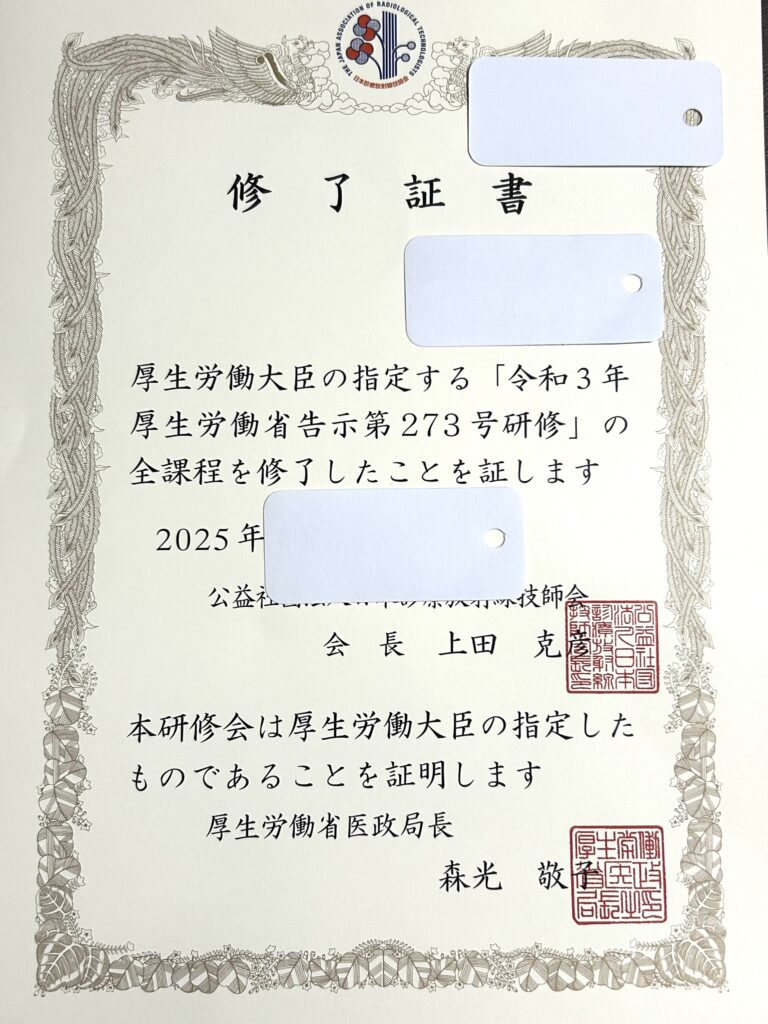 THE JAPAN ASSOCIATION OF RADIOLOGICAL TECHNOLOGISTS
日本診療放射線技師会
修了証書
厚生労働大臣の指定する「令和3年
厚生労働省告示第273号研修」の
全課程を修了したことを証します
2025年
公益社団法人日本診療放射線技師会
会長 上田 克彦
本研修会は厚生労働大臣の指定した
ものであることを証明します
厚生労働省医政局長
森光 敬子